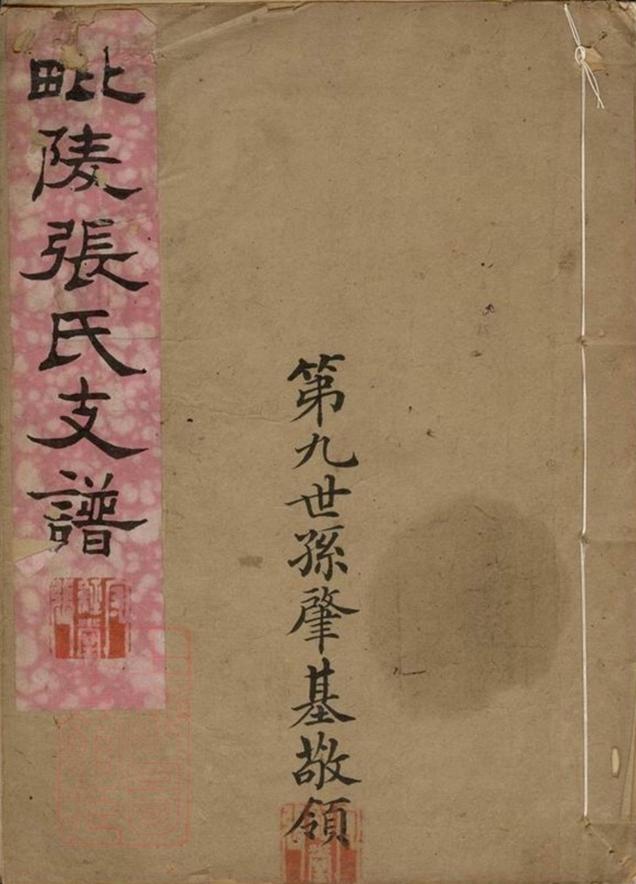 毗陵張氏支譜
第九世孫肇基敬領